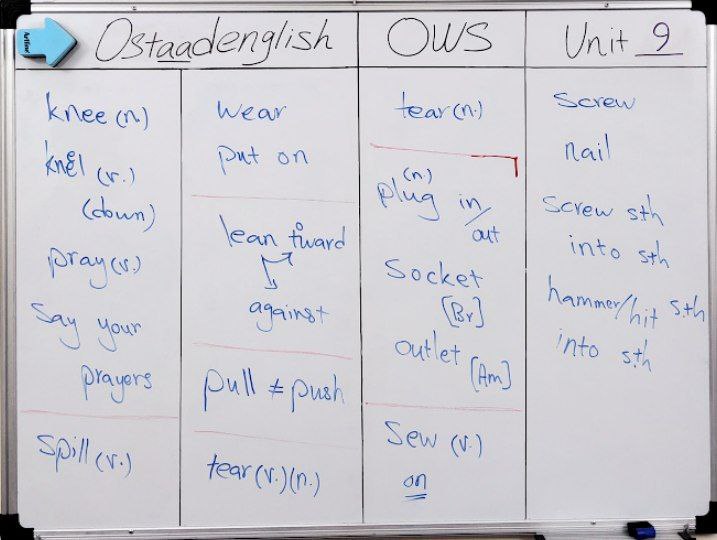 Ostaadenglish
OWS
Unit 9
knee (n.)
knel (v.)
(down)
pray (v.)
Say your
prayers
Spill (v.)
wear
put on
lean toward
against
pull ≠ push
tear (v.) (n.)
tear (n.)
(n.)
plug in/
out
Socket
[Br]
outlet
[Am]
Sew (v.)
on
Screw
nail
Screw sth
into sth
hammer/hit s.th
into s.th